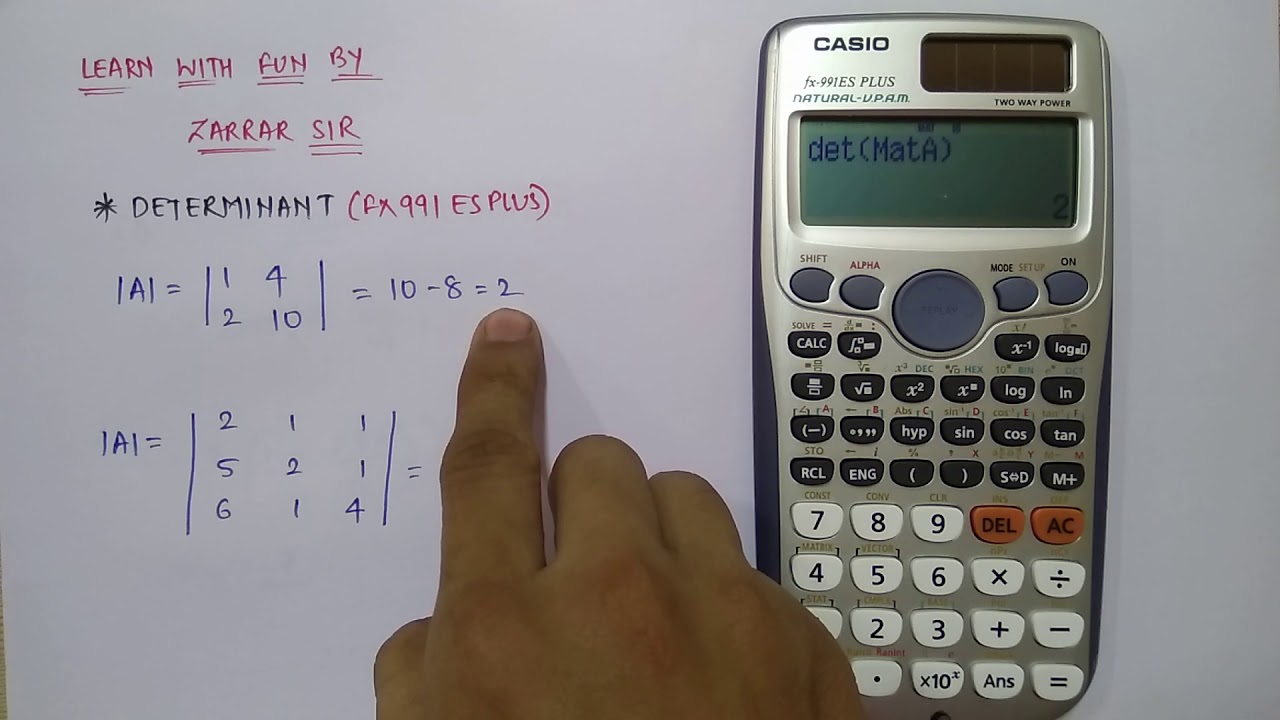 LEARN WITH FUN BY
ZARRAR SIR
* DETERMINANT (FX991 ES PLUS)
|A| = | 1 4 | = 10 - 8 = 2
| 2 10 |
| 2 1 1 |
|A| = | 5 2 1 | =
| 6 1 4 |
CASIO
fx-991ES PLUS
NATURAL-V.P.A.M.
TWO WAY POWER
det(MatA)
2
SHIFT ALPHA MODE SETUP ON
REPLAY
SOLVE =
CALC x⁻¹ log
x³ DEC HEX BIN OCT
√ x² log ln
A B Abs C sin⁻¹ D cos⁻¹ E tan⁻¹ F
(−) hyp sin cos tan
STO i X Y M− M
RCL ENG ( ) S⇔D M+
CONST CONV CLR INS OFF
7 8 9 DEL AC
MATRIX VECTOR nPr
4 5 6 × ÷
STAT CMPLX BASE
2 3 + −
RanInt
. ×10ˣ Ans =